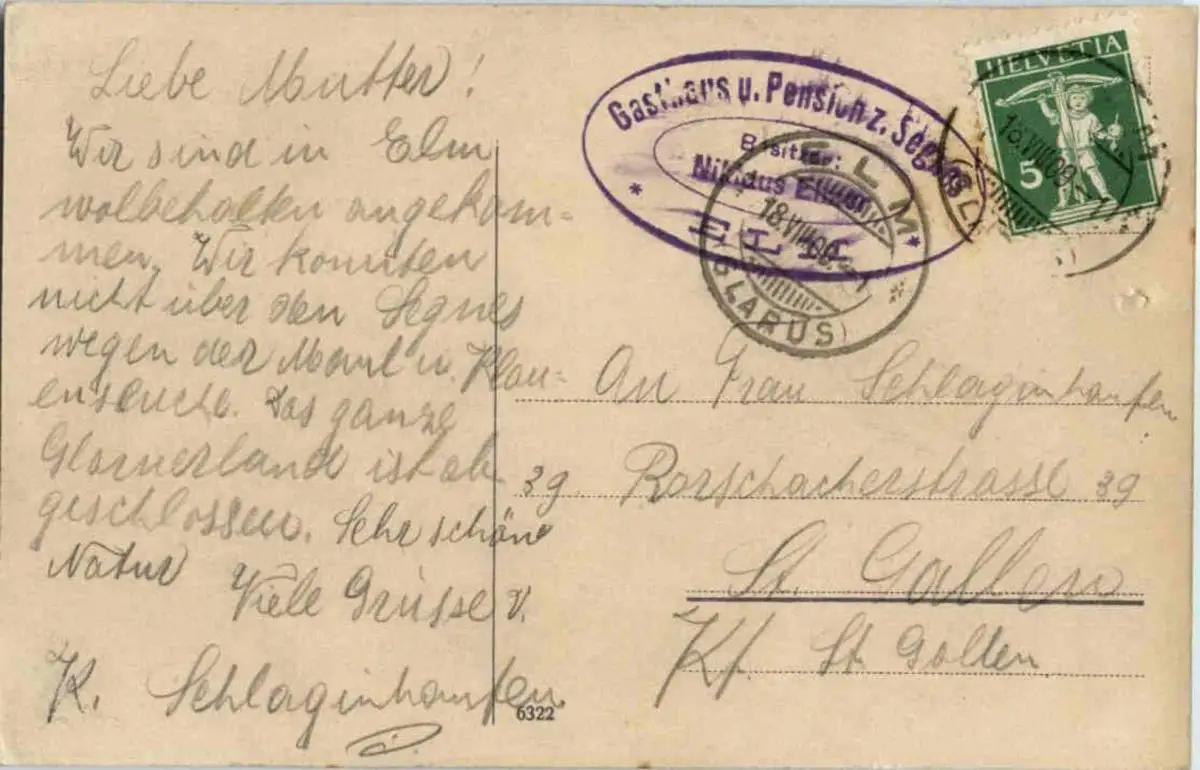 Liebe Mutter!
Wir sind in Elm
wolbehalten angekom-
men. Wir konnten
nicht über den Segnes
wegen der Maul u. Klau-
enseuche. Das ganze
Glarnerland ist ab
geschlossen. Sehr schöne
Natur Viele Grüsse v.
K. Schlaginhaufen
Gasthaus u. Pension z. Segnes
Besitzer:
Nikolaus Elmer
ELM
ELM
18.VIII.09
(GLARUS)
HELVETIA
18.VIII.09
5
An Frau Schlaginhaufen
39 Rorschacherstrasse 39
St. Gallen
Kt. St Gallen
6322